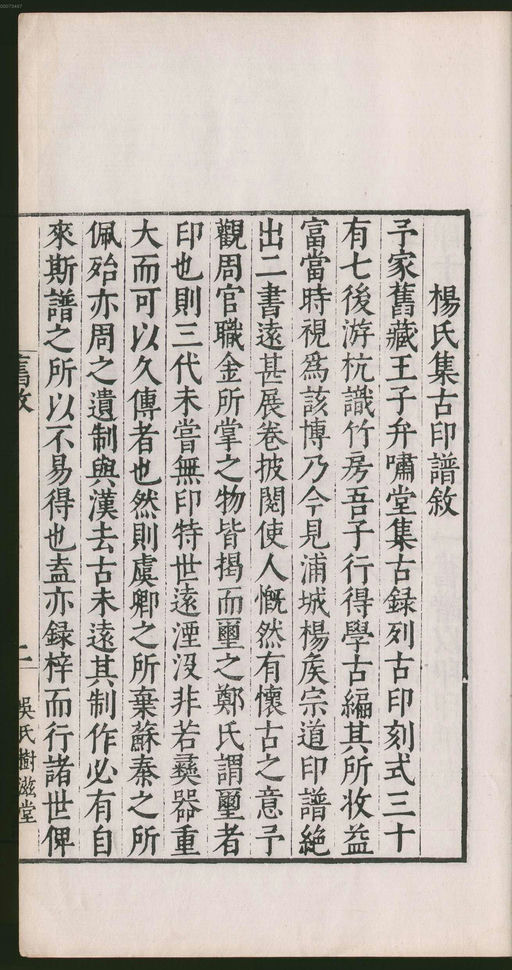 楊氏集古印譜敘
予家舊藏王子弁嘯堂集古録列古印刻式三十
有七後游杭識竹房吾子行得學古編其所收益
富當時視為該博乃今見浦城楊矦宗道印譜絶
出二書逺甚展卷披閱使人慨然有懷古之意予
觀周官職金所掌之物皆揭而璽之鄭氏謂璽者
印也則三代未嘗無印特世逺湮没非若彞器重
大而可以久傳者也然則虞卿之所棄蘇秦之所
佩殆亦周之遺制與漢去古未逺其制作必有自
來斯譜之所以不易得也盍亦録梓而行諸世俾
舊敘
二
吳氏樹滋堂
00073447